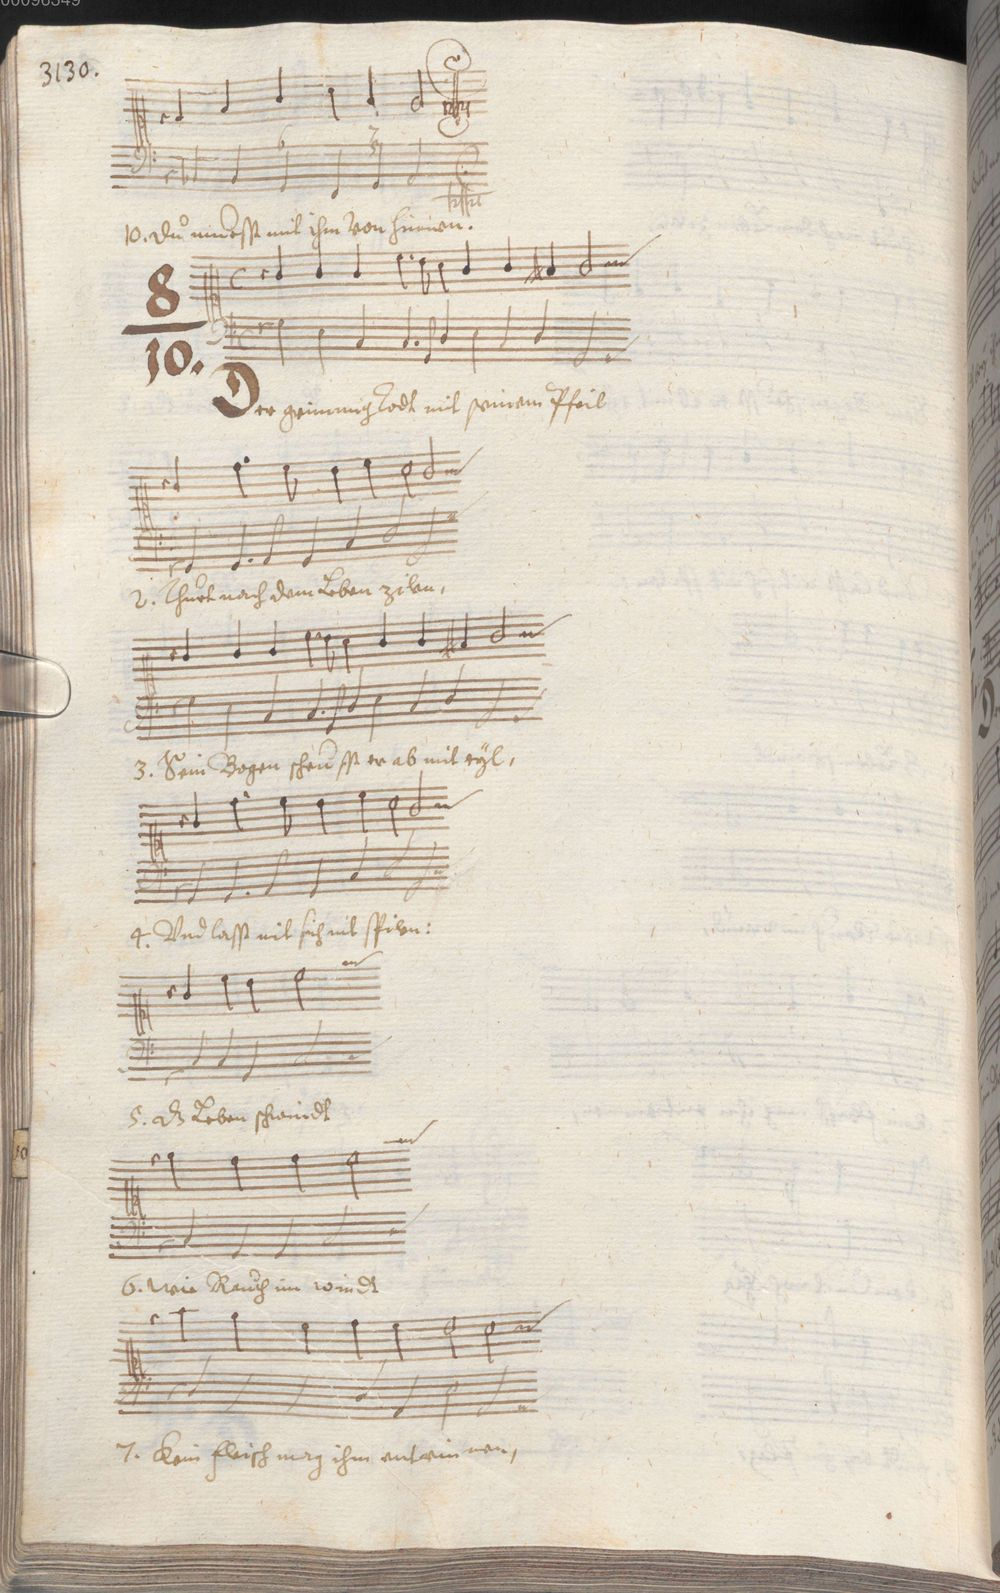 3130.
6
7
10. Du muesst mit ihm von hinnen.
8
10.
Der grimmig Todt mit seinem Pfeil
2. Thuet nach dem Leben zilen,
3. Sein Bogen scheusst er ab mit eyl,
4. Vnd lasst mit sich nit spilen:
5. dz Leben schwindt
6. wie Rauch im windt
7. Kein fleisch mag ihm entrinnen,